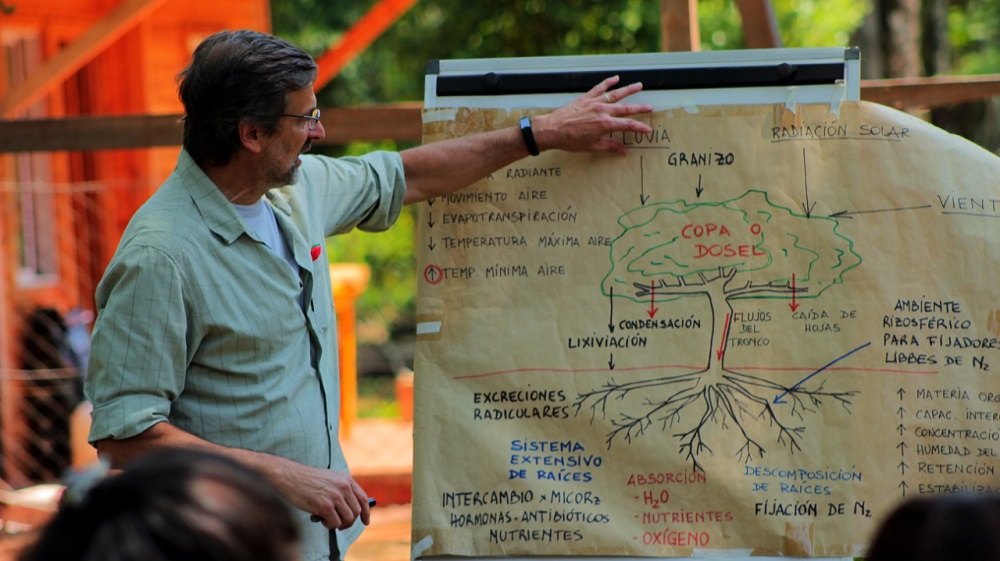 LLUVIA
RADIACIÓN SOLAR
GRANIZO
VIENT
RADIANTE
↓ MOVIMIENTO AIRE
↓ EVAPOTRANSPIRACIÓN
↓ TEMPERATURA MÁXIMA AIRE
↑ TEMP. MÍNIMA AIRE
COPA O
DOSEL
CONDENSACIÓN
LIXIVIACIÓN
FLUJOS
DEL
TRONCO
CAÍDA DE
HOJAS
AMBIENTE
RIZOSFÉRICO
PARA FIJADORES
LIBBES DE N₂
EXCRECIONES
RADICULARES
SISTEMA
EXTENSIVO
DE RAÍCES
INTERCAMBIO x MICORZ
HORMONAS-ANTIBIÓTICOS
NUTRIENTES
ABSORCIÓN
- H₂O
- NUTRIENTES
- OXÍGENO
DESCOMPOSICIÓN
DE RAÍCES
FIJACIÓN DE N₂
↑ MATERIA ORG
↑ CAPAC. INTER
↑ CONCENTRACIÓ
↑ HUMEDAD DEL
↑ RETENCIÓN
↑ ESTABILIZA